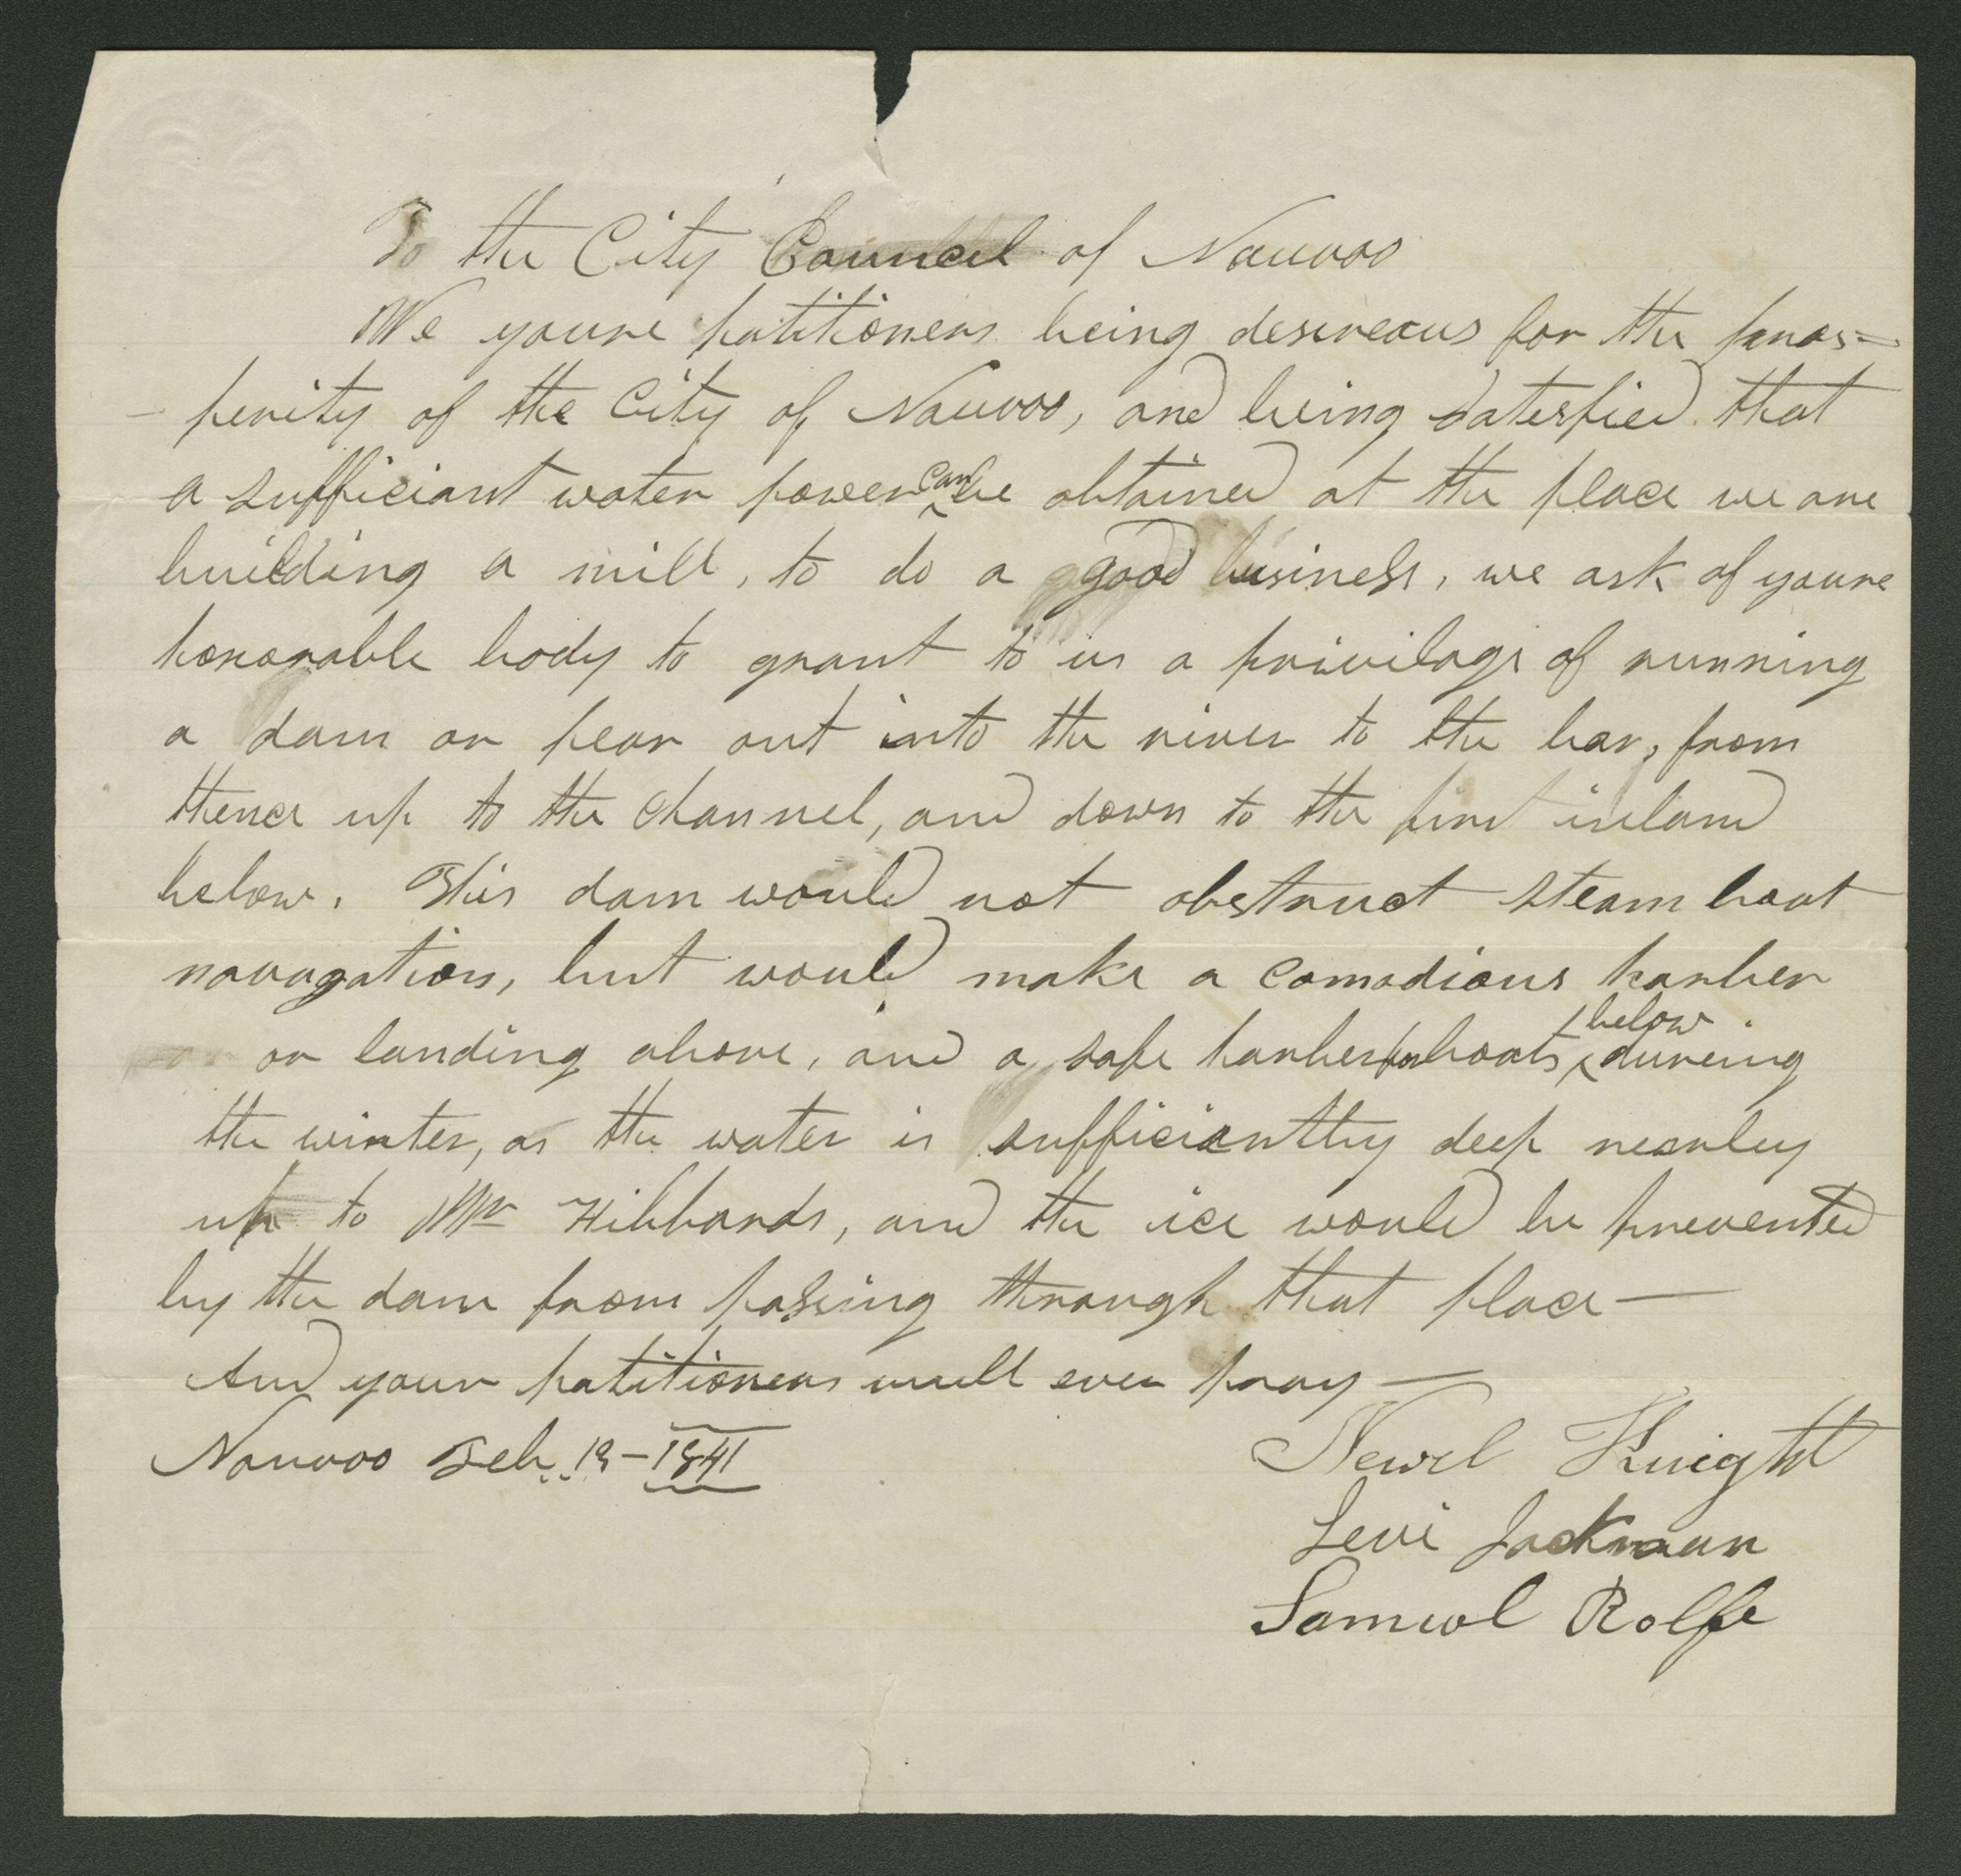 To the City Councel of Nauvoo
We youre patitioners being desireous for the pros=
- perity of the City of Nauvoo, and being saterfied that
a sufficiant water power can be obtained at the place we are
building a mill, to do a good business, we ask of youre
honorable body to grant to us a privilage of running
a dam or pear out into the river to the bar, from
thence up to the channel, and down to the first island
below. This dam would not obstruct steam boat
navagation, but would make a comodious harber
or landing above, and a safe harber for boats below dureing
the winter, as the water is sufficiantly deep nearley
up to Mr Hibbards, and the ice would be prevented
by the dam from passing through that place —
And your patitioners will ever pray —
Nauvoo Feb. 19 - 1841
Newel Knight
Levi Jackman
Samuel Rolfe